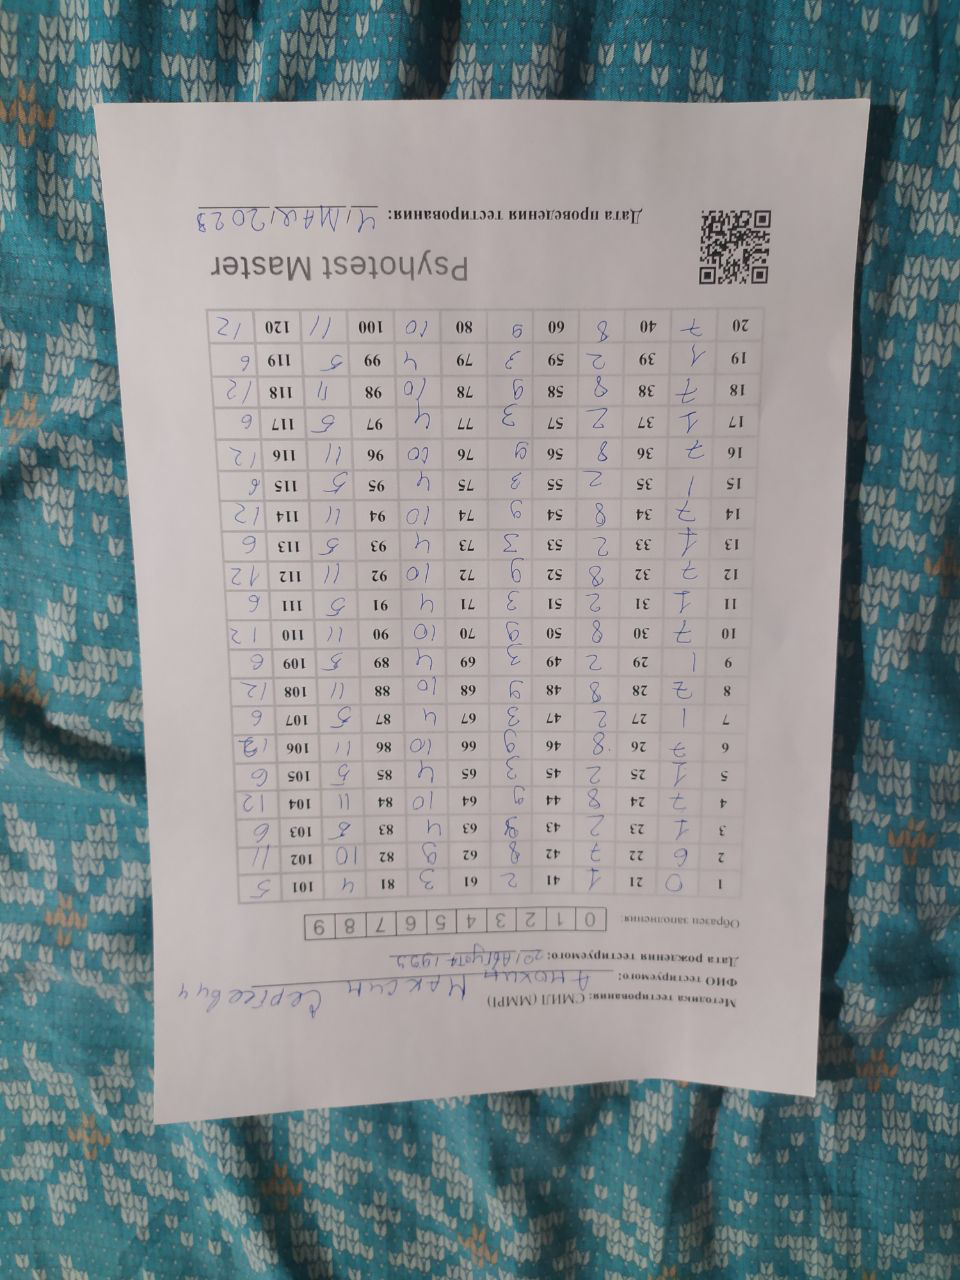 Методика тестирования: СМИЛ (MMPI)
ФИО тестируемого: Анохин Максим Сергеевич
Дата рождения тестируемого: 20/Августа/
Образец заполнения: 0 1 2 3 4 5 6 7 8 9
1 0 21 1 41 2 61 3 81 4 101 5
2 6 22 7 42 8 62 9 82 10 102 11
3 1 23 2 43 3 63 4 83 5 103 6
4 7 24 8 44 9 64 10 84 11 104 12
5 1 25 2 45 3 65 4 85 5 105 6
6 7 26 8 46 9 66 10 86 11 106 12
7 1 27 2 47 3 67 4 87 5 107 6
8 7 28 8 48 9 68 10 88 11 108 12
9 1 29 2 49 3 69 4 89 5 109 6
10 7 30 8 50 9 70 10 90 11 110 12
11 1 31 2 51 3 71 4 91 5 111 6
12 7 32 8 52 9 72 10 92 11 112 12
13 1 33 2 53 3 73 4 93 5 113 6
14 7 34 8 54 9 74 10 94 11 114 12
15 1 35 2 55 3 75 4 95 5 115 6
16 7 36 8 56 9 76 10 96 11 116 12
17 1 37 2 57 3 77 4 97 5 117 6
18 7 38 8 58 9 78 10 98 11 118 12
19 1 39 2 59 3 79 4 99 5 119 6
20 7 40 8 60 9 80 10 100 11 120 12
Psyhotest Master
Дата проведения тестирования: 4/МАЯ/2023